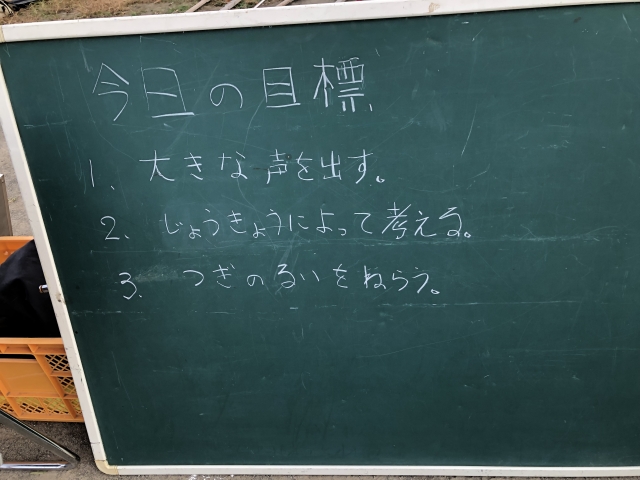 今日の目標
1、大きな声を出す。
2、じょうきょうによって考える。
3、つぎのるいをねらう。